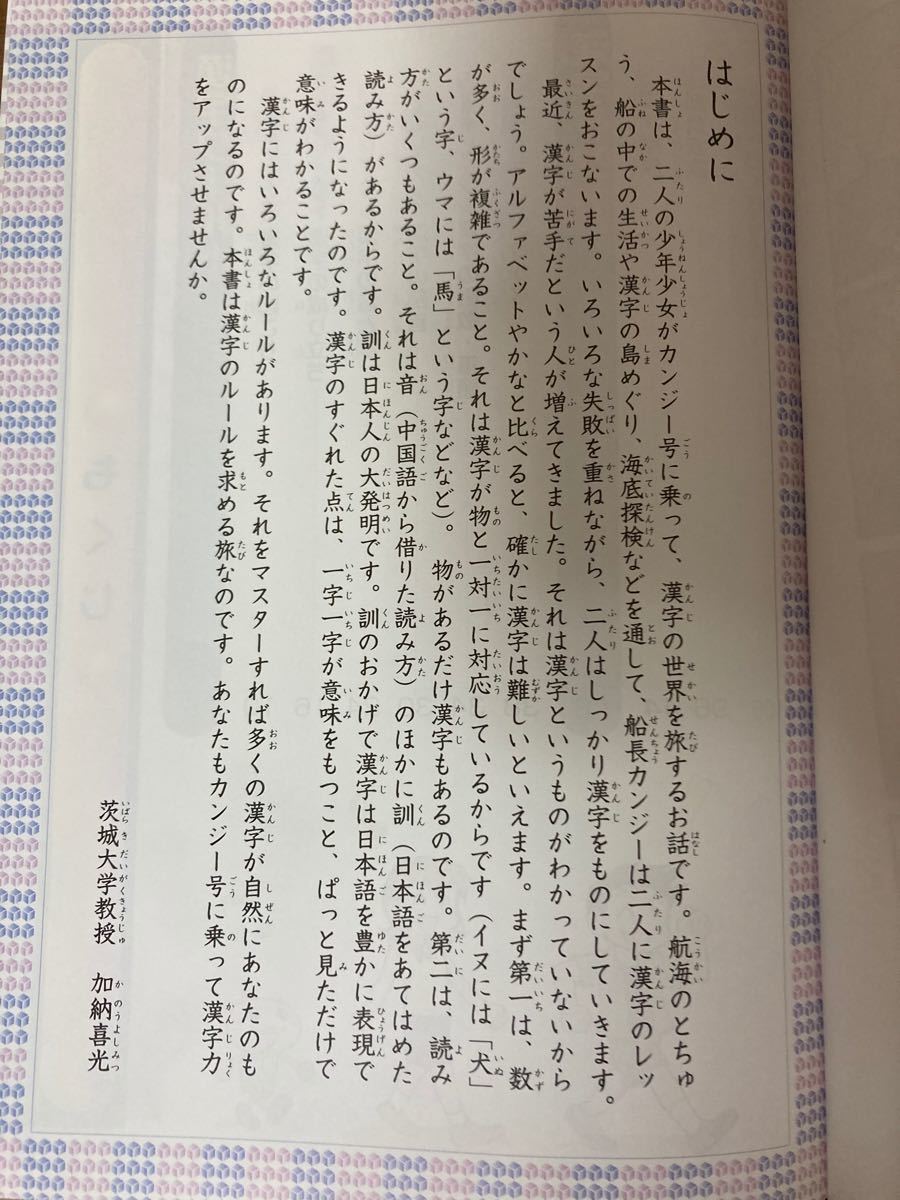 はじめに
本書は、二人の少年少女がカンジー号に乗って、漢字の世界を旅するお話です。航海のとちゅ
う、船の中での生活や漢字の島めぐり、海底探検などを通して、船長カンジーは二人に漢字のレッ
スンをおこないます。いろいろな失敗を重ねながら、二人はしっかり漢字をものにしていきます。
最近、漢字が苦手だという人が増えてきました。それは漢字というものがわかっていないから
でしょう。アルファベットやかなと比べると、確かに漢字は難しいといえます。まず第一は、数
が多く、形が複雑であること。それは漢字が物と一対一に対応しているからです（イヌには「犬」
という字、ウマには「馬」という字などなど）。物があるだけ漢字もあるのです。第二は、読み
方がいくつもあること。それは音（中国語から借りた読み方）のほかに訓（日本語をあてはめた
読み方）があるからです。訓は日本人の大発明です。訓のおかげで漢字は日本語を豊かに表現で
きるようになったのです。漢字のすぐれた点は、一字一字が意味をもつこと、ぱっと見ただけで
意味がわかることです。
漢字にはいろいろなルールがあります。それをマスターすれば多くの漢字が自然にあなたのも
のになるのです。本書は漢字のルールを求める旅なのです。あなたもカンジー号に乗って漢字力
をアップさせませんか。
茨城大学教授　加納喜光